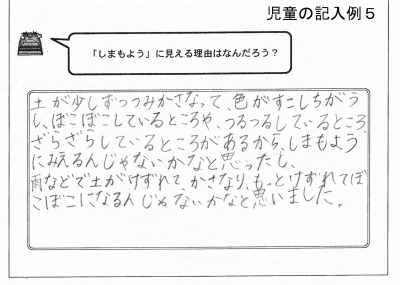 児童の記入例5
「しまもよう」に見える理由はなんだろう？
土が少しずつつみかさなって、色がすこしちがう
し、ぼこぼこしているところや、つるつるしているところ、
ざらざらしているところがあるから、しまもよう
にみえるんじゃないかなと思ったし、
雨などで土がけずれて、かさなり、もっとけずれてぼ
こぼこになるんじゃないかなと思いました。